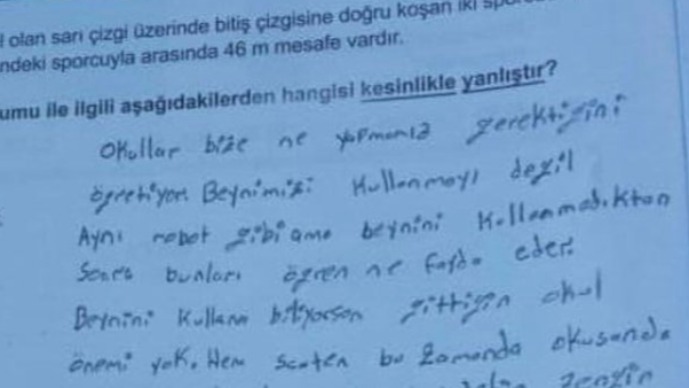 olan sarı çizgi üzerinde bitiş çizgisine doğru koşan iki
ndeki sporcuyla arasında 46 m mesafe vardır.
umu ile ilgili aşağıdakilerden hangisi kesinlikle yanlıştır?
Okullar bize ne yapmamız gerektiğini
öğretiyor. Beynimizi kullanmayı değil
Aynı robot gibi ama beynini kullanmadıktan
Sonra bunları öğren ne fayda eder.
Beynini kullana bitiyorsan gittiğin okul
önemi yok. Hem scaten bu zamanda okusanda
zengin